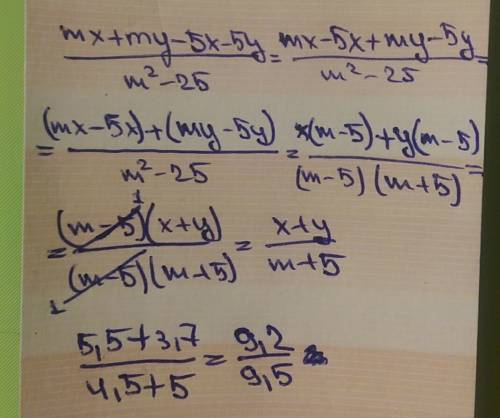 (mx+my-5x-5y)/(m²-25) = (mx-5x+my-5y)/(m²-25) =
= ((mx-5x)+(my-5y))/(m²-25) = (x(m-5)+y(m-5))/((m-5)(m+5)) =
= ((m-5)(x+y))/((m-5)(m+5)) = (x+y)/(m+5)
(5,5+3,7)/(4,5+5) = 9,2/9,5